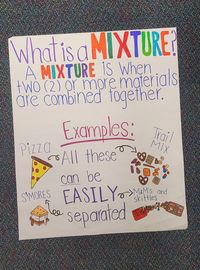 What is a MIXTURE?
A MIXTURE is when
two (2) or more materials
are combined together.
Examples:
Pizza
Trail
Mix
All these
can be
EASILY
separated
S'MORES
M&M's and
skittles